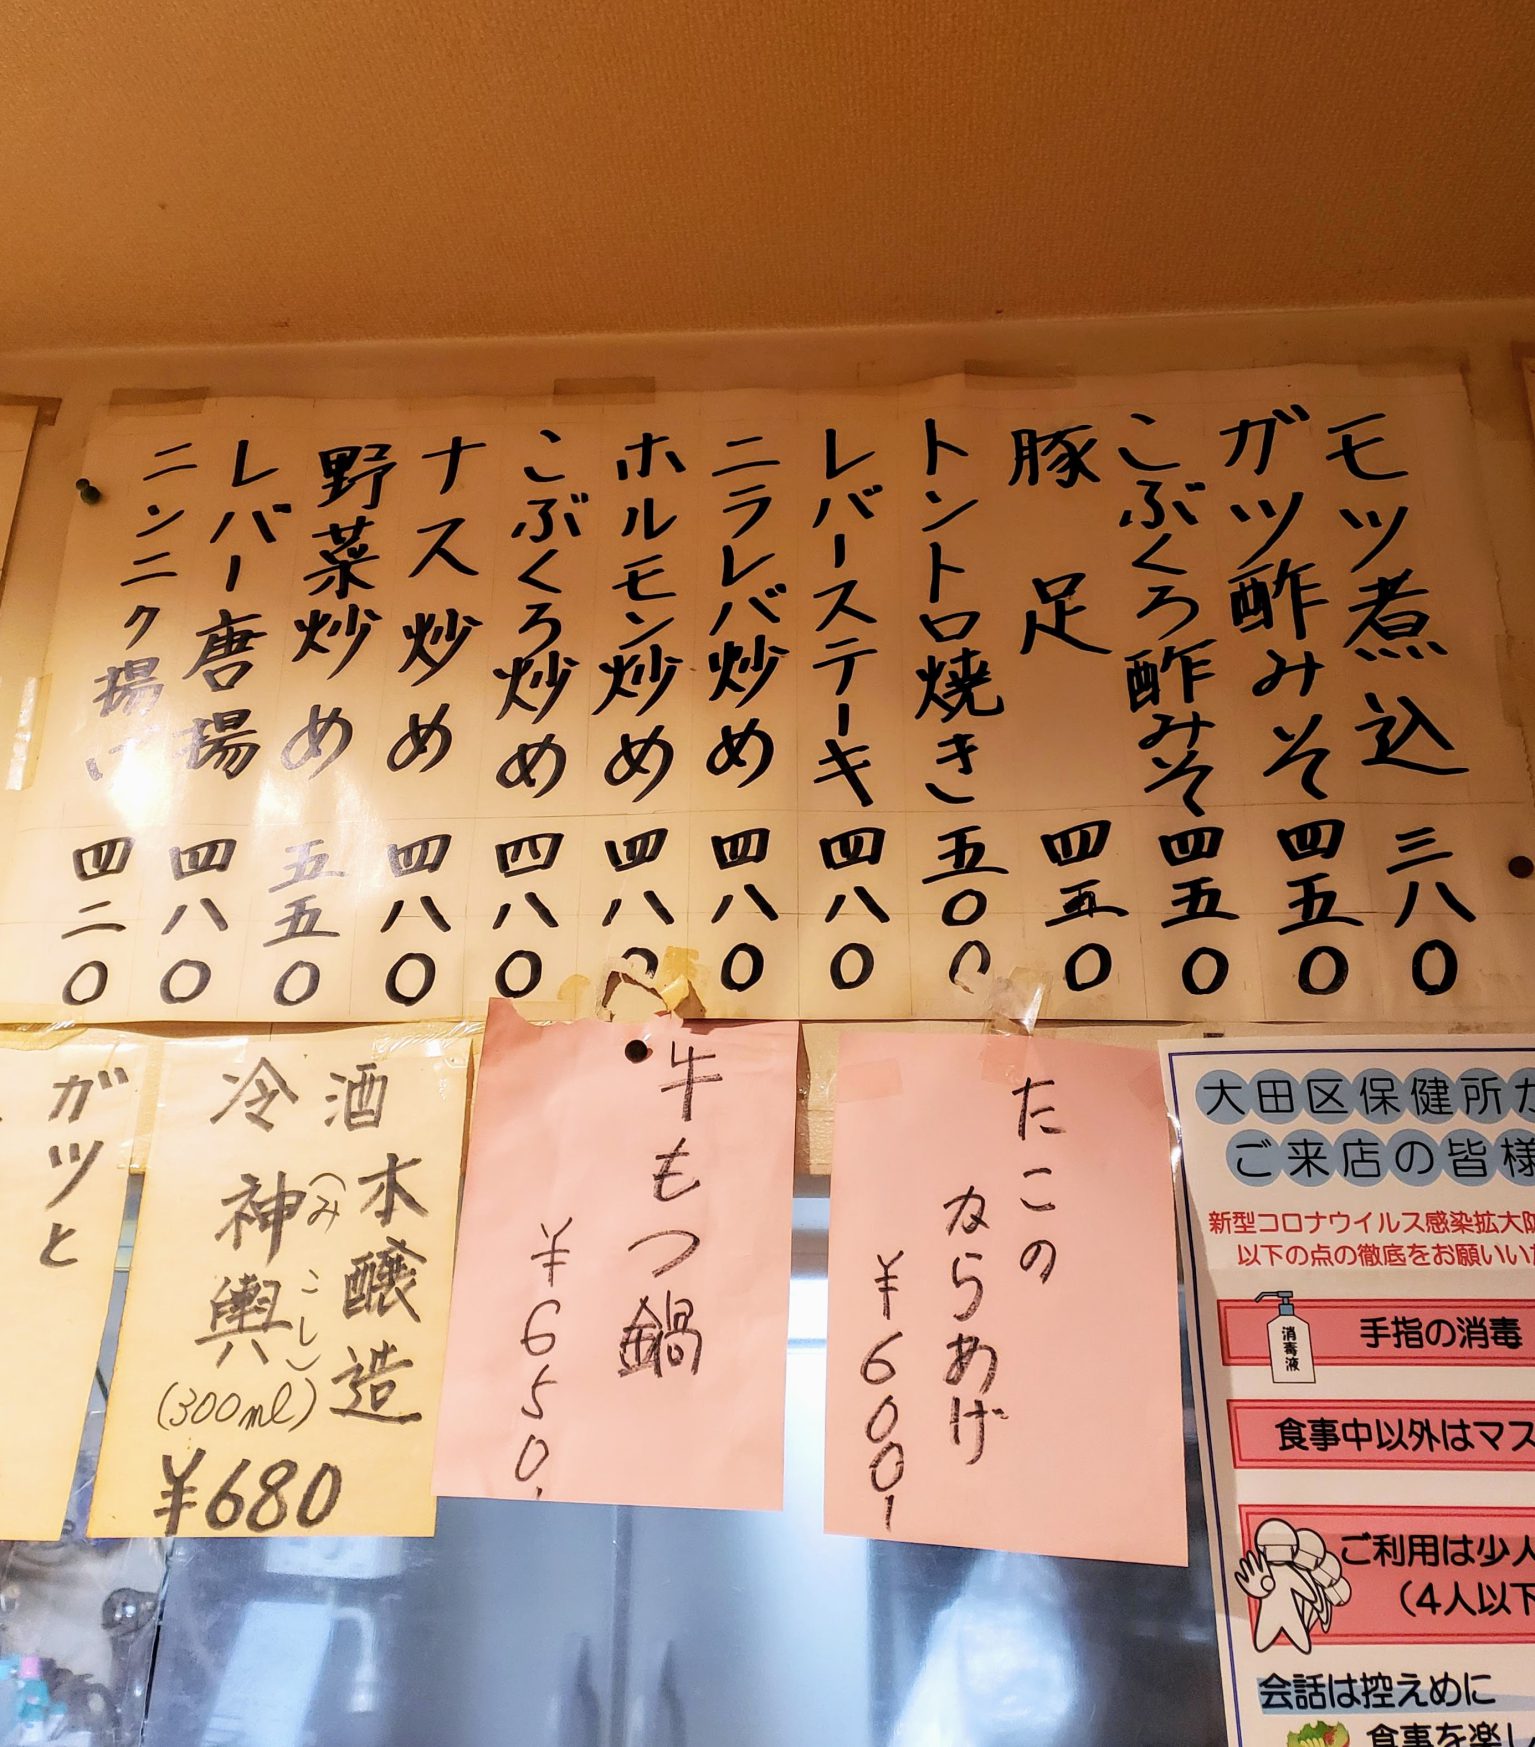 モツ煮込 三八〇
ガツ酢みそ 四五〇
こぶくろ酢みそ 四五〇
豚足 四五〇
トントロ焼き 五〇〇
レバーステーキ 四八〇
ニラレバ炒め 四八〇
ホルモン炒め 四八〇
こぶくろ炒め 四八〇
ナス炒め 四八〇
野菜炒め 五五〇
レバー唐揚 四八〇
ニンニク揚げ 四二〇
大田区保健所か
ご来店の皆様
新型コロナウイルス感染拡大防
以下の点の徹底をお願いいた
消毒液
手指の消毒
食事中以外はマス
ご利用は少人
（4人以下
会話は控えめに
食事を楽し
たこの
からあげ
¥600
牛もつ鍋
¥650
冷酒
本醸造
神輿(みこし)
(300ml)
¥680
ガツと